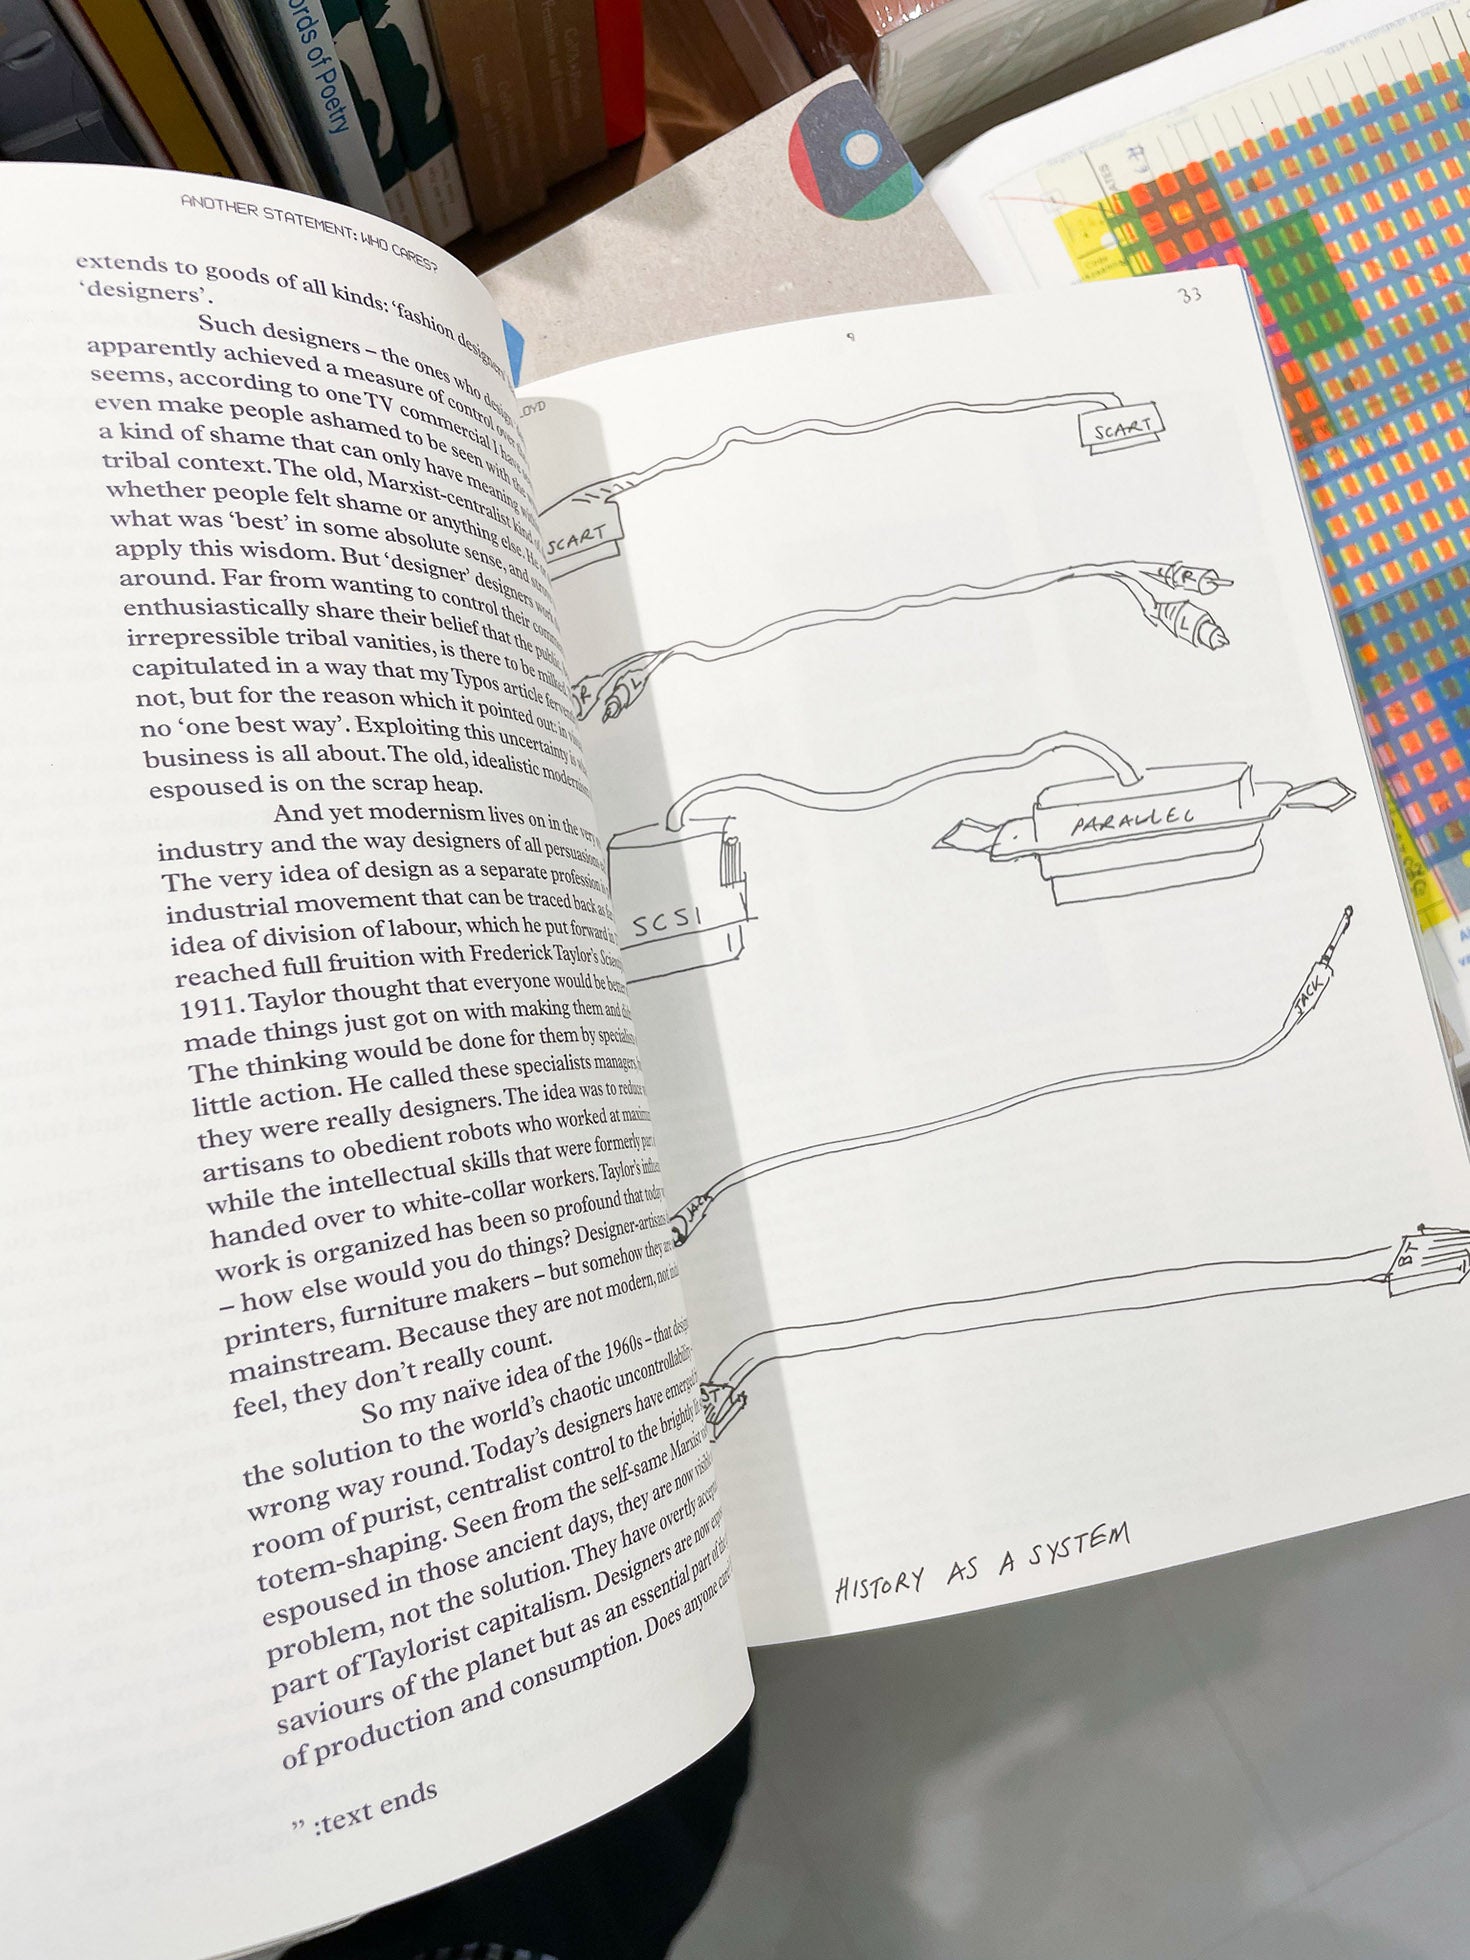 ords of Poetry
ANOTHER STATEMENT: WHO CARES?
extends to goods of all kinds: ‘fashion designers’
‘designers’.
Such designers – the ones who design
apparently achieved a measure of control over the
seems, according to one TV commercial I have
even make people ashamed to be seen with the
a kind of shame that can only have meaning
tribal context. The old, Marxist-centralist kind of
whether people felt shame or anything else. He
what was ‘best’ in some absolute sense, and
apply this wisdom. But ‘designer’ designers work
around. Far from wanting to control their
enthusiastically share their belief that the public,
irrepressible tribal vanities, is there to be milked.
capitulated in a way that my Typos article
not, but for the reason which it pointed out: in
no ‘one best way’. Exploiting this uncertainty is
business is all about. The old, idealistic modernism
espoused is on the scrap heap.
And yet modernism lives on in the very
industry and the way designers of all persuasions
The very idea of design as a separate profession
industrial movement that can be traced back as
idea of division of labour, which he put forward in
reached full fruition with Frederick Taylor’s
1911. Taylor thought that everyone would be better
made things just got on with making them and
The thinking would be done for them by specialists
little action. He called these specialists managers,
they were really designers. The idea was to reduce
artisans to obedient robots who worked at
while the intellectual skills that were formerly
handed over to white-collar workers. Taylor’s
work is organized has been so profound that today
– how else would you do things? Designer-artisans
printers, furniture makers – but somehow they are
mainstream. Because they are not modern, not
feel, they don’t really count.
So my naïve idea of the 1960s – that
the solution to the world’s chaotic uncontrollability
wrong way round. Today’s designers have emerged
room of purist, centralist control to the brightly
totem-shaping. Seen from the self-same Marxist
espoused in those ancient days, they are now
problem, not the solution. They have overtly
part of Taylorist capitalism. Designers are now
saviours of the planet but as an essential part of the
of production and consumption. Does anyone care?
” :text ends
33
LOYD
SCART
SCART
R
L
R
L
PARALLEL
SCSI
JACK
JACK
BT
HISTORY AS A SYSTEM